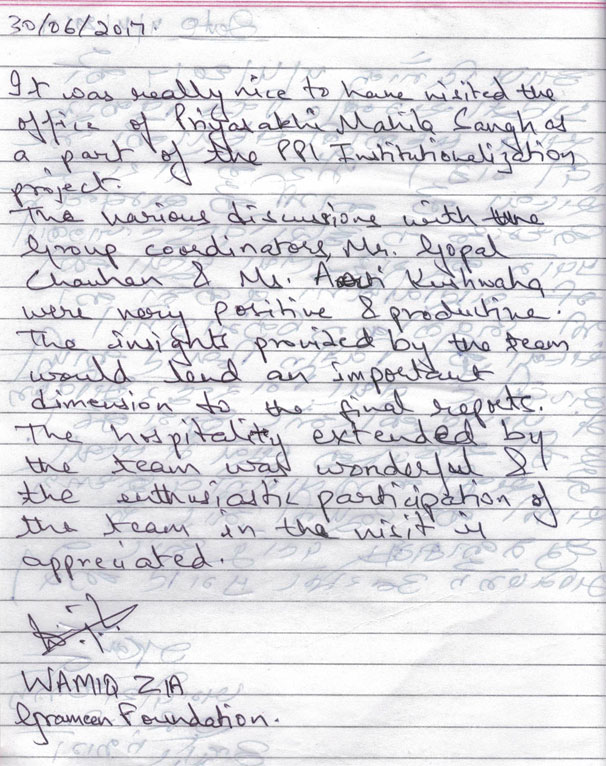 30/06/2017.
It was really nice to have visited the
office of Priyasakhi Mahila Sangh as
a part of the PPI Institutionalization
project.
The various discussions with the
Group coordinators, Mr. Gopal
Chauhan & Ms. Aarti Kushwaha
were very positive & productive.
The insights provided by the team
would lend an important
dimension to the final reports.
The hospitality extended by
the team was wonderful &
the enthusiastic participation of
the team in the visit is
appreciated.
WAMIQ ZIA
Grameen Foundation.